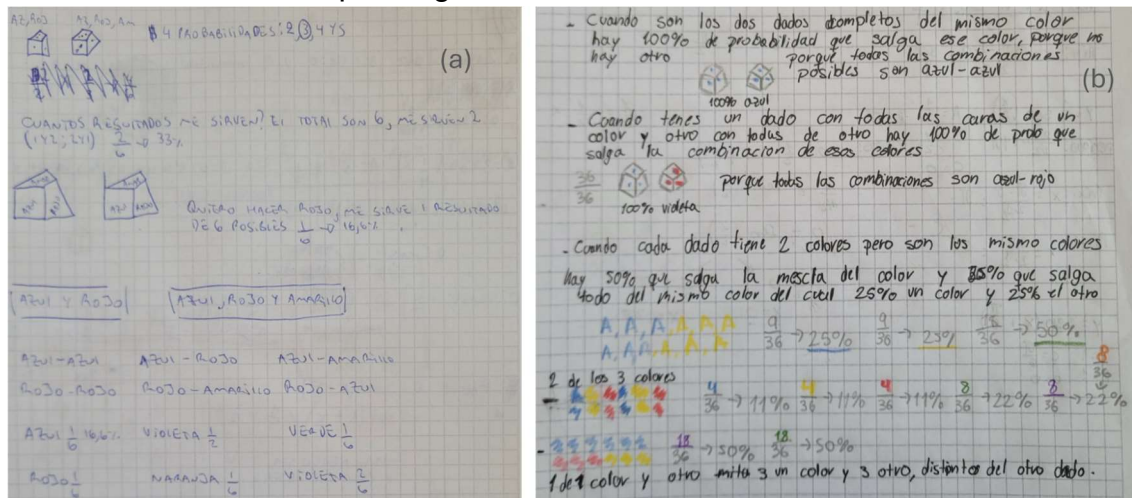 AZ, ROJ
AZ, ROJ, AM
4 PROBABILIDADES: 2, 3, 4 Y 5
(a)
CUANTOS RESULTADOS ME SIRVEN? EL TOTAL SON 6, ME SIRVEN 2
(1Y2; 2Y1) 2/6 → 33%
AZUL
AZUL
QUIERO HACER ROJO, ME SIRVE 1 RESULTADO
DE 6 POSIBLES 1/6 → 16,6%
AZUL Y ROJO
AZUL, ROJO Y AMARILLO
AZUL-AZUL AZUL-ROJO AZUL-AMARILLO
ROJO-ROJO ROJO-AMARILLO ROJO-AZUL
AZUL 1/6 16,6% VIOLETA 1/2 VERDE 1/6
ROJO 1/6 NARANJA 1/6 VIOLETA 2/6
- Cuando son los dos dados completos del mismo color
hay 100% de probabilidad que salga ese color, porque no
hay otro porque todas las combinaciones
posibles son azul-azul
(b)
100% azul
- Cuando tenes un dado con todas las caras de un
color y otro con todas de otro hay 100% de prob que
salga la combinacion de esos colores
36/36 porque todas las combinaciones son azul-rojo
100% violeta
- Cuando cada dado tiene 2 colores pero son los mismo colores
hay 50% que salga la mescla del color y 25% que salga
todo del mismo color del cual 25% un color y 25% el otro
A, A, A, A, A, A 9/36 → 25% 9/36 → 25% 18/36 → 50%
A, A, A, A, A, A
8/36
2 de los 3 colores
4/36 → 11% 4/36 → 11% 4/36 → 11% 8/36 → 22% 8/36 → 22%
18/36 → 50% 18/36 → 50%
1 de 1 color y otro mita 3 un color y 3 otro, distintos del otro dado.